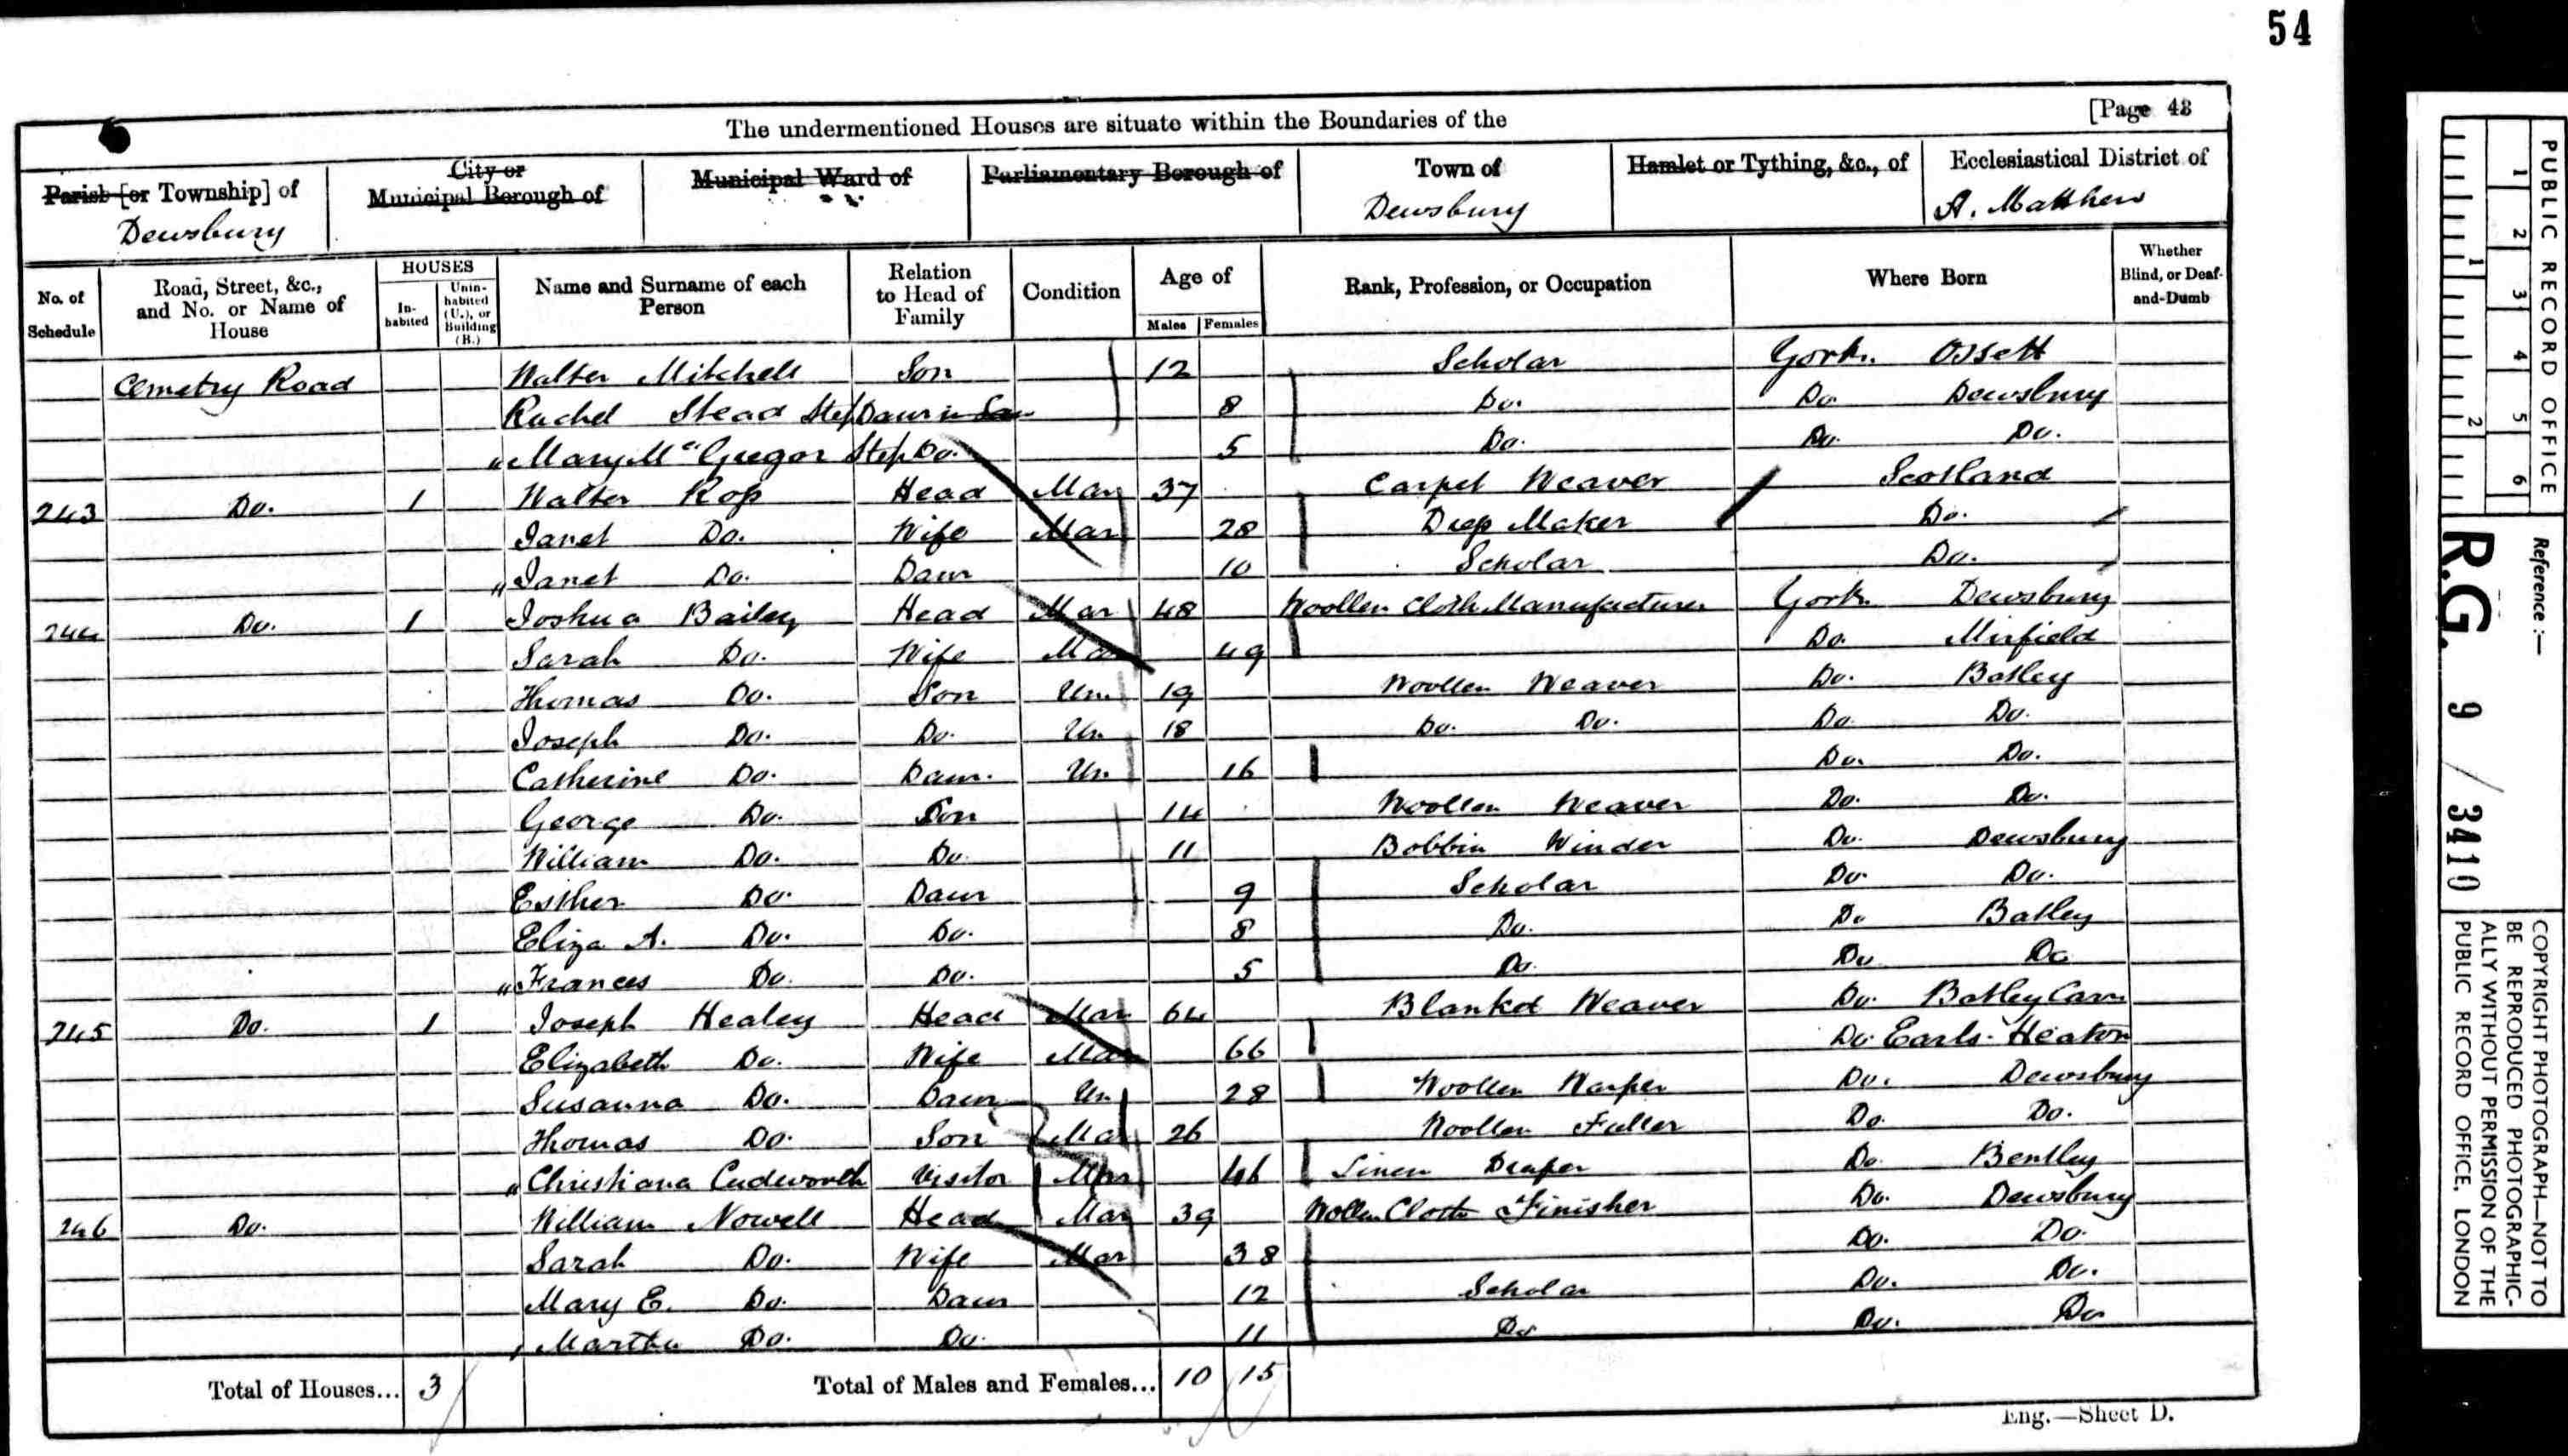 54
[Page 43
The undermentioned Houses are situate within the Boundaries of the
Parish [or Township] of
City or Municipal Borough of
Municipal Ward of
Parliamentary Borough of
Town of
Hamlet or Tything, &c., of
Ecclesiastical District of
Dewsbury Dewsbury St. Matthew
No. of Schedule
Road, Street, &c., and No. or Name of House
HOUSES
In-habited
Unin-habited (U.), or Building (B.)
Name and Surname of each Person
Relation to Head of Family
Condition
Age of
Males Females
Rank, Profession, or Occupation
Where Born
Whether Blind, or Deaf-and-Dumb
Cemetry Road Walter Mitchell Son 12 Scholar York. Ossett
Rachel Stead Step Daur in Law 8 Do. Do Dewsbury
Mary Mc Gregor Step Do. 5 Do. Do. Do.
243 Do. 1 Walter Ross Head Mar 37 Carpet Weaver Scotland
Janet Do. Wife Mar 28 Maker Do.
Janet Do. Daur 10 Scholar Do.
244 Do. 1 Joshua Bailey Head Mar 48 Woollen Cloth Manufacturer York. Dewsbury
Sarah Do. Wife Mar 49 Do. Mirfield
Thomas Do. Son Un. 19 Woollen Weaver Do. Batley
Joseph Do. Do. Un 18 Do. Do. Do. Do.
Catherine Do. Daur. Un. 16 Do. Do.
George Do. Son 14 Woollen Weaver Do. Do.
William Do. Do. 11 Bobbin Winder Do. Dewsbury
Esther Do. Daur 9 Scholar Do. Do.
Eliza A. Do. Do. 8 Do. Do Batley
Frances Do. Do. 5 Do. Do Do
245 Do. 1 Joseph Healey Head Mar 64 Blanket Weaver Do. Batley Carr
Elizabeth Do. Wife Mar 66 Do. Earls-Heaton
Susanna Do. Daur Un 28 Woollen Warper Do. Dewsbury
Thomas Do. Son Mar 26 Woollen Fuller Do. Do.
Christiana Cudworth Visitor Mar 46 Linen Draper Do. Bentley
246 Do. William Nowell Head Mar 39 Wollen Cloth Finisher Do. Dewsbury
Sarah Do. Wife Mar 38 Do. Do.
Mary E. Do. Daur 12 Scholar Do. Do.
Martha Do. Do. 11 Do Do. Do
Total of Houses... 3 Total of Males and Females... 10 15
Eng.—Sheet D.
PUBLIC RECORD OFFICE
1 2 3 4 5 6
1 2
Reference :—
R.G. 9 / 3410
COPYRIGHT PHOTOGRAPH—NOT TO BE REPRODUCED PHOTOGRAPHIC-ALLY WITHOUT PERMISSION OF THE PUBLIC RECORD OFFICE, LONDON